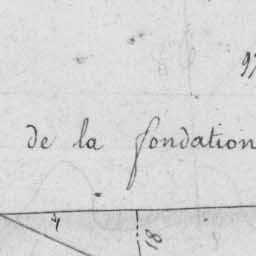 de la fondation
4
18